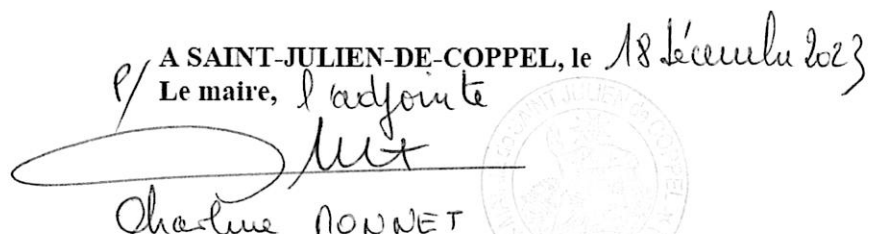 A SAINT-JULIEN-DE-COPPEL, le 18 décembre 2023
P/ Le maire, l'adjointe
Charline MONNET
MAIRIE de SAINT JULIEN de COPPEL